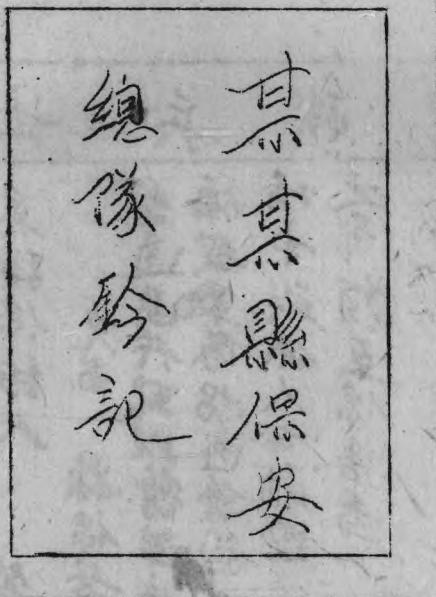 某某縣保安
總隊鈐記